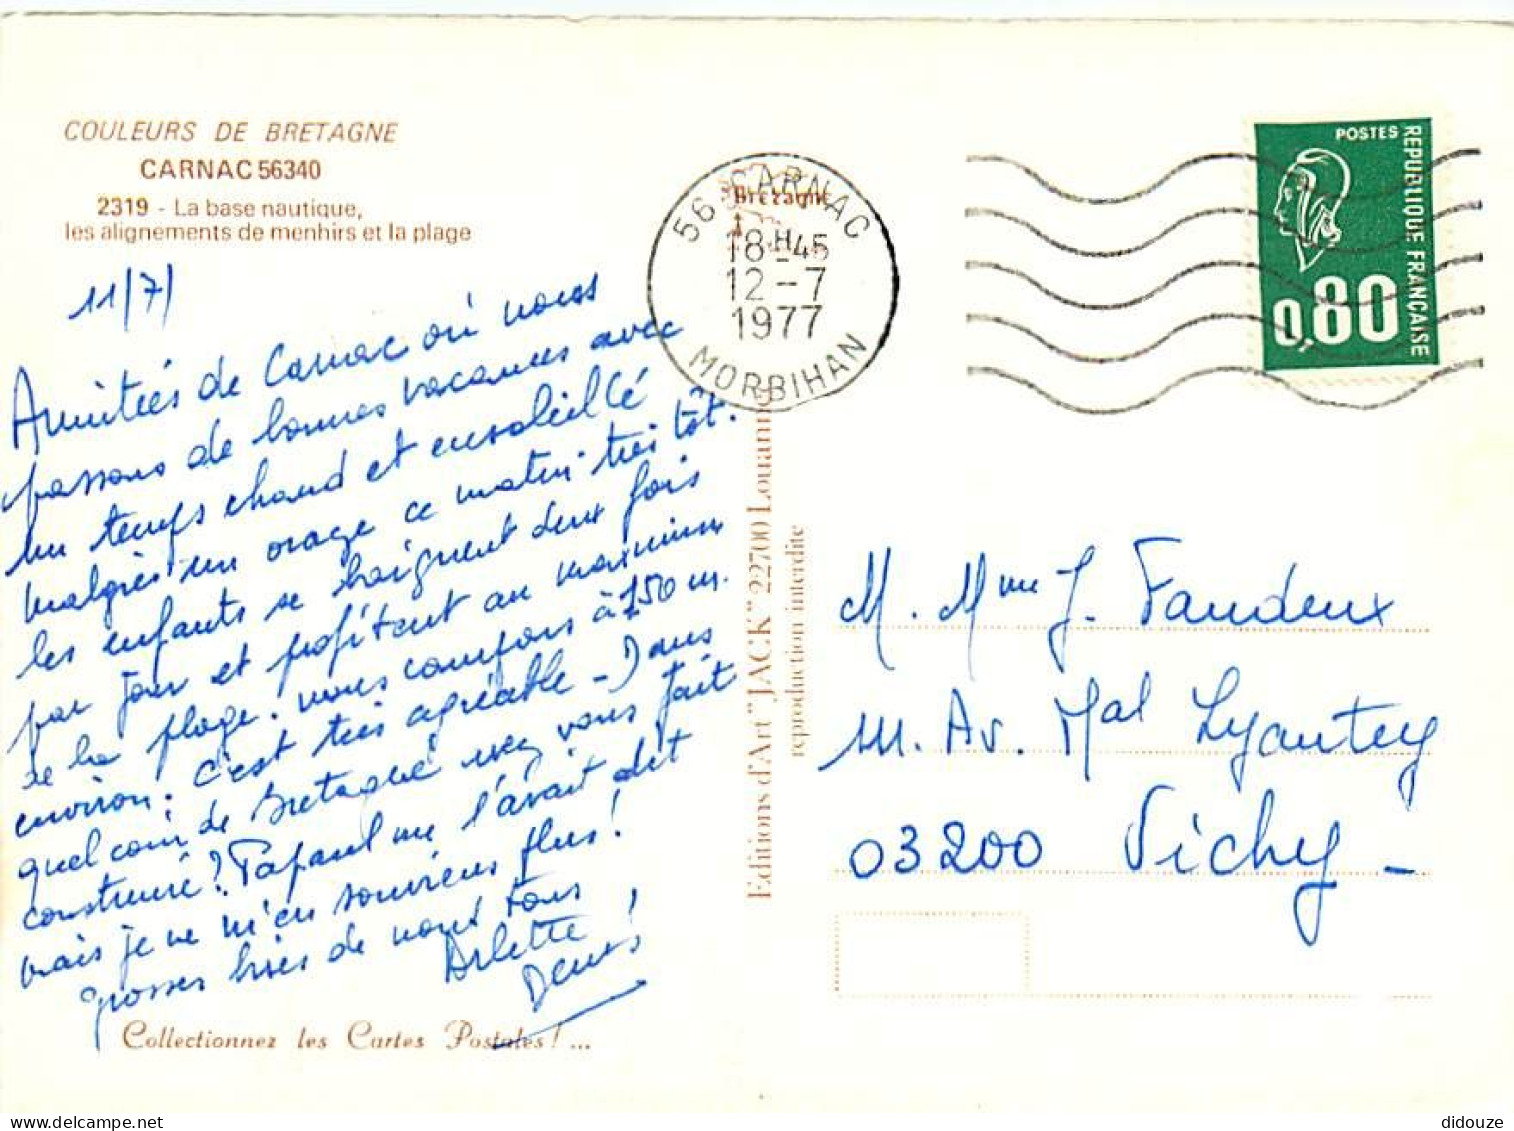 COULEURS DE BRETAGNE
CARNAC 56340
2319 - La base nautique,
les alignements de menhirs et la plage
11/7/
Amitiés de Carnac où nous
passons de bonnes vacances avec
un temps chaud et ensoleillé
malgrès un orage ce matin très tôt.
les enfants se baignent deux fois
par jour et profitent au maximum
de la plage. nous campons à 150 m.
environ. c'est très agréable - Dans
quel coin de Bretagne avez vous fait
construire? Papa me l'avait dit
mais je ne m'en souviens plus!
grosses bises de nous tous
Arlette
Denis
Collectionnez les Cartes Postales! ...
56 CARNAC
Bretagne
18H45
12-7
1977
MORBIHAN
Editions d'Art "JACK" 22700 Louannec
reproduction interdite
POSTES
REPUBLIQUE FRANÇAISE
0,80
M. Mme J. Fandeux
111. Av. Mal Lyautey
03200 Vichy -
didouze